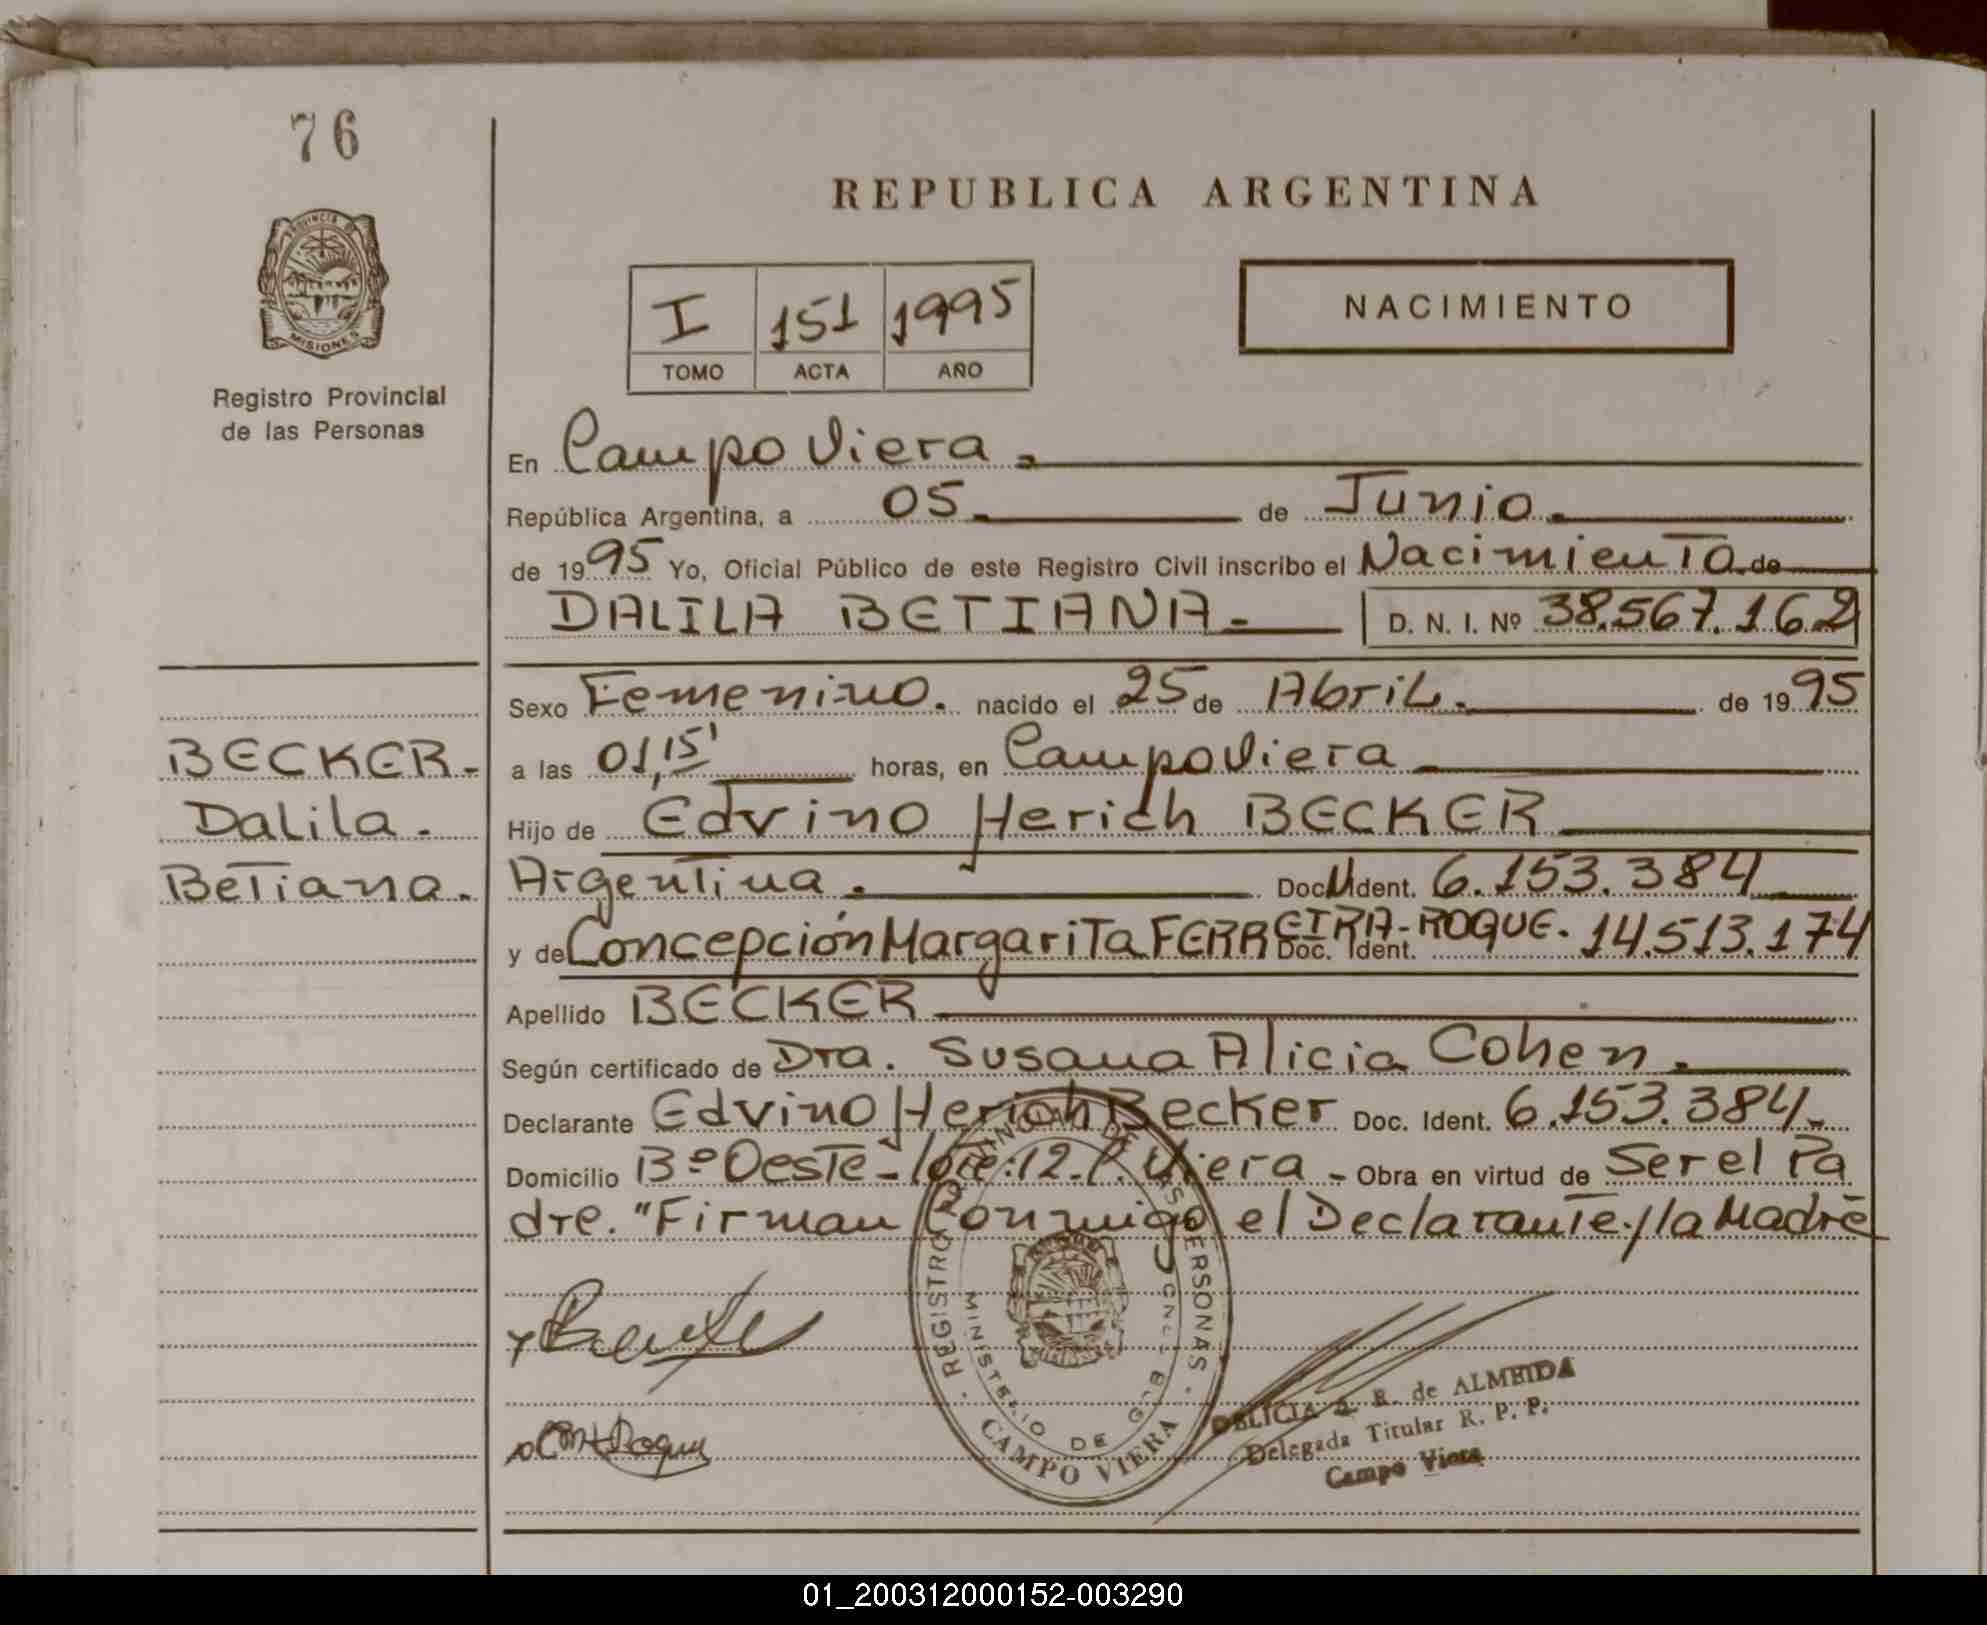 76
REPUBLICA ARGENTINA
PROVINCIA DE
MISIONES
Registro Provincial
de las Personas
I 151 1995
TOMO ACTA AÑO
NACIMIENTO
En Campo Viera.
República Argentina, a 05. de Junio.
de 1995 Yo, Oficial Público de este Registro Civil inscribo el Nacimiento de
DALILA BETIANA.- D. N. I. Nº 38.567.162
Sexo Femenino. nacido el 25 de Abril. de 1995
BECKER-
Dalila.
Betiana.
a las 01,15' horas, en Campo Viera
Hijo de Edvino Herich BECKER
Argentina. Doc. Ident. 6.153.384
y de Concepción Margarita FERREIRA-ROQUE. Doc. Ident. 14.513.174
Apellido BECKER
Según certificado de Dra. Susana Alicia Cohen.
Declarante Edvino Herich Becker Doc. Ident. 6.153.384.
Domicilio Bº Oeste-lote:12-C. Viera - Obra en virtud de Ser el Pa
dre. "Firman Conmigo el Declarante y la Madre
REGISTRO DE LAS PERSONAS
MINISTERIO DE GOB
CAMPO VIERA
R. de ALMEIDA
Delegada Titular R. P. P.
Campo Viera
01_200312000152-003290